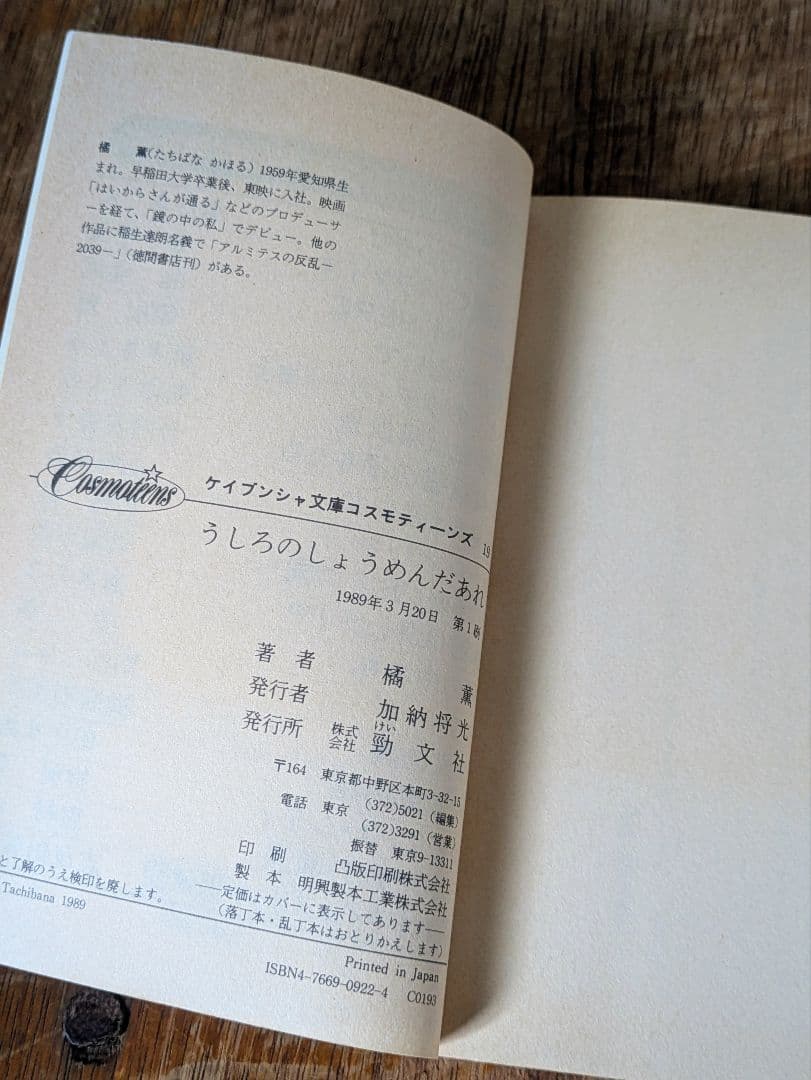 橘　薫(たちばな かほる) 1959年愛知県生
まれ。早稲田大学卒業後、東映に入社。映画
「はいからさんが通る」などのプロデューサ
ーを経て、「鏡の中の私」でデビュー。他の
作品に稲生達朗名義で「アルミテスの反乱―
2039―」(徳間書店刊) がある。
Cosmoteens
ケイブンシャ文庫コスモティーンズ 19
うしろのしょうめんだあれ
1989年3月20日 第1刷
著者 橘 薫
発行者 加納将光
発行所 株式会社 勁文社
けい
〒164 東京都中野区本町3-32-15
電話 東京 (372)5021 (編集)
(372)3291 (営業)
振替 東京9-13311
印刷 凸版印刷株式会社
製本 明興製本工業株式会社
―定価はカバーに表示してあります―
(落丁本・乱丁本はおとりかえします)
と了解のうえ検印を廃します。
Tachibana 1989
Printed in Japan
ISBN4-7669-0922-4 C0193